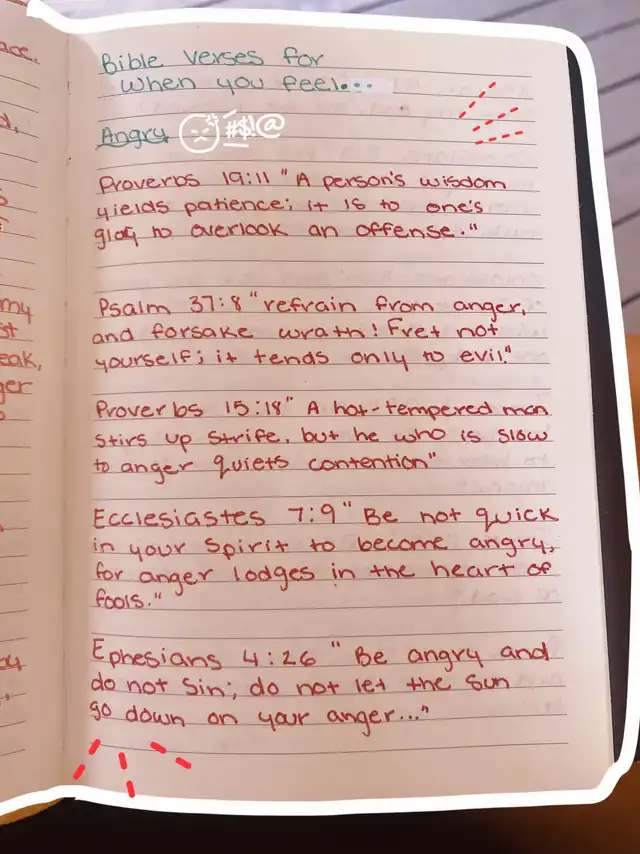 ace.
d,
my
st
eak,
ger
Bible verses for
when you feel...
Angry #$!@
Proverbs 19:11 "A person's wisdom
yields patience; it is to one's
glory to overlook an offense."
Psalm 37:8 "refrain from anger,
and forsake wrath! Fret not
yourself; it tends only to evil"
Proverbs 15:18 "A hot-tempered man
stirs up strife, but he who is slow
to anger quiets contention"
Ecclesiastes 7:9 "Be not quick
in your spirit to become angry,
for anger lodges in the heart of
fools."
Ephesians 4:26 "Be angry and
do not sin; do not let the sun
go down on your anger..."